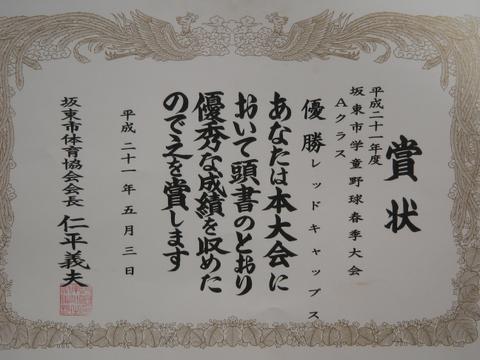 賞状
平成二十一年度
坂東市学童野球春季大会
Aクラス
優勝レッドキャップス
あなたは本大会に
おいて頭書のとおり
優秀な成績を収めた
ので之を賞します
平成二十一年五月三日
坂東市体育協会会長仁平義夫